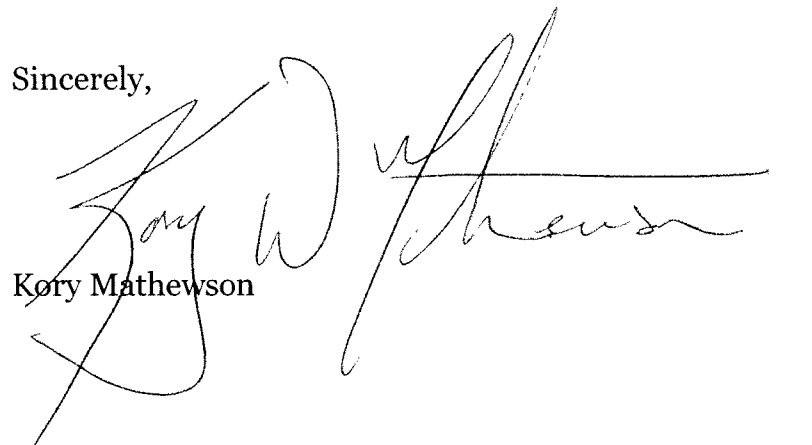 Sincerely,
Kory W Mathewson
Kory Mathewson